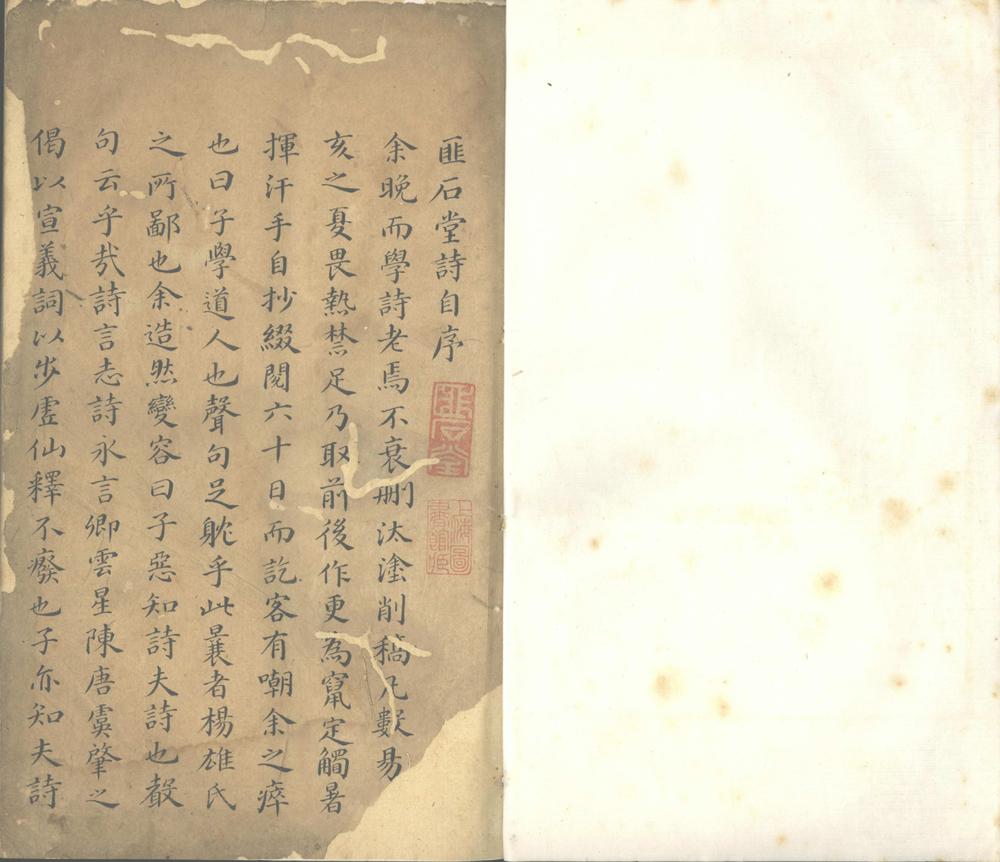 匪石堂詩自序
余晚而學詩老焉不衰刪汰塗削稿凡數易
亥之夏畏熱禁足乃取前後作更為竄定觸暑
揮汗手自抄綴閱六十日而訖客有嘲余之瘁
也曰子學道人也聲句足躭乎此曩者楊雄氏
之所鄙也余造然變容曰子惡知詩夫詩也聲
句云乎㢤詩言志詩永言卿雲星陳唐虞肇之
偈以宣義詞以步虛仙釋不癈也子亦知夫詩
上海圖書館臧